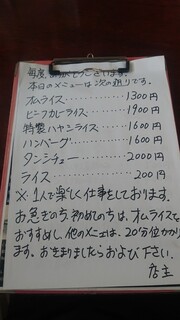 毎度、ありがとうございます。
本日のメニューは次の通りです。
オムライス・・・・・・・・・・・1300円
ビーフカレライス・・・・・・・・1900円
特製ハヤシライス・・・・・・・・1600円
ハンバーグ・・・・・・・・・・・1600円
タンシチュー・・・・・・・・・・2000円
ライス・・・・・・・・・・・・・200円
※1人で楽しく仕事をしております。
お急ぎの方、初めての方は、オムライスを
おすすめし、他のメニューは、20分位かかり
ます。お決まりましたらおよび下さい。
店主